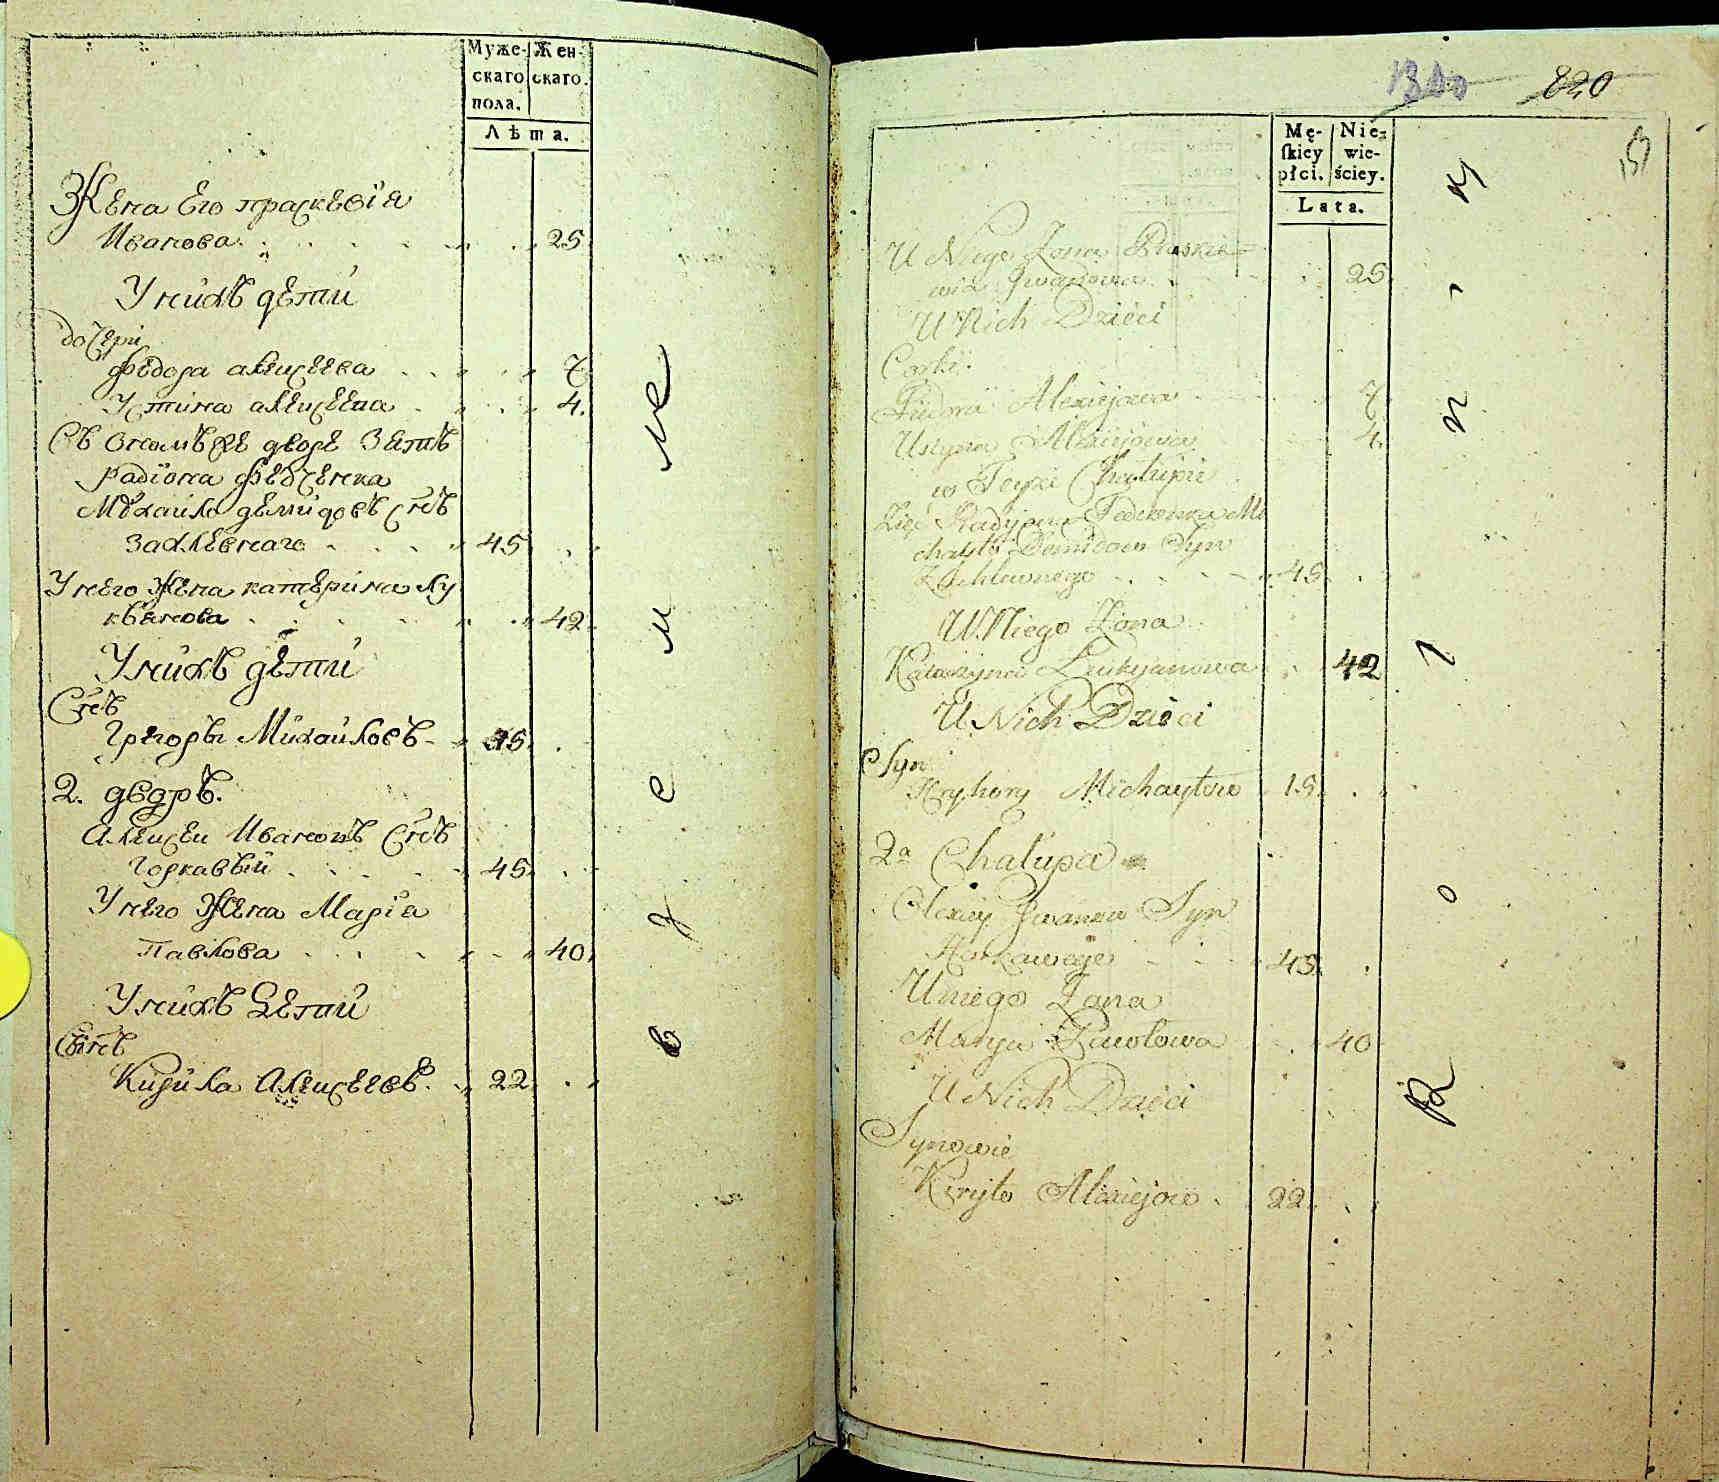 Муже- Жен-
скаго скаго.
пола.
Лѣта.
Жена Его праскевїа
Иванова 25
У нихъ дети
дочери
федора алеисеева 7
Устина алеисеева 4.
Въ ономъ же дворе Зеть
радїона федченка
Михаило демидовъ снъ
захлевнаго 45
У него жена катерина лу
кьянова 42
У нихъ дети
Снъ
Григоръи Михаиловъ 15
2. дворъ.
Алеисеи Ивановъ Снъ
Горкавъıй 45
У него Жена Марїа
Павлова 40
У нихъ Дети
Снъ
Кирила Алеисеевъ. 22
820
151
Mę- Nie-
skiey wie-
płci. ściey.
Lata.
U Niego Zona Praskie-
wia Jwanowa 25
U Nich Dzieci
Corki.
Fiedora Alexiejowa 7
Ustyna Alexiejowa 4.
w Teyze Chałupie
Zięć Radyjona Fedczenka Mi
chayło Demidow Syn
Zachlewnego 45
U Niego Zona
Katarzyna Łukyanowa 42
U Nich Dzieci
Syn
Hryhory Michayłow 15
2a Chałupa
Alexiey Jwanow Syn
Horkawego 45
U niego Zona
Marya Pawłowa 40
U Nich Dzieci
Synowie
Kiryło Alexiejow 22